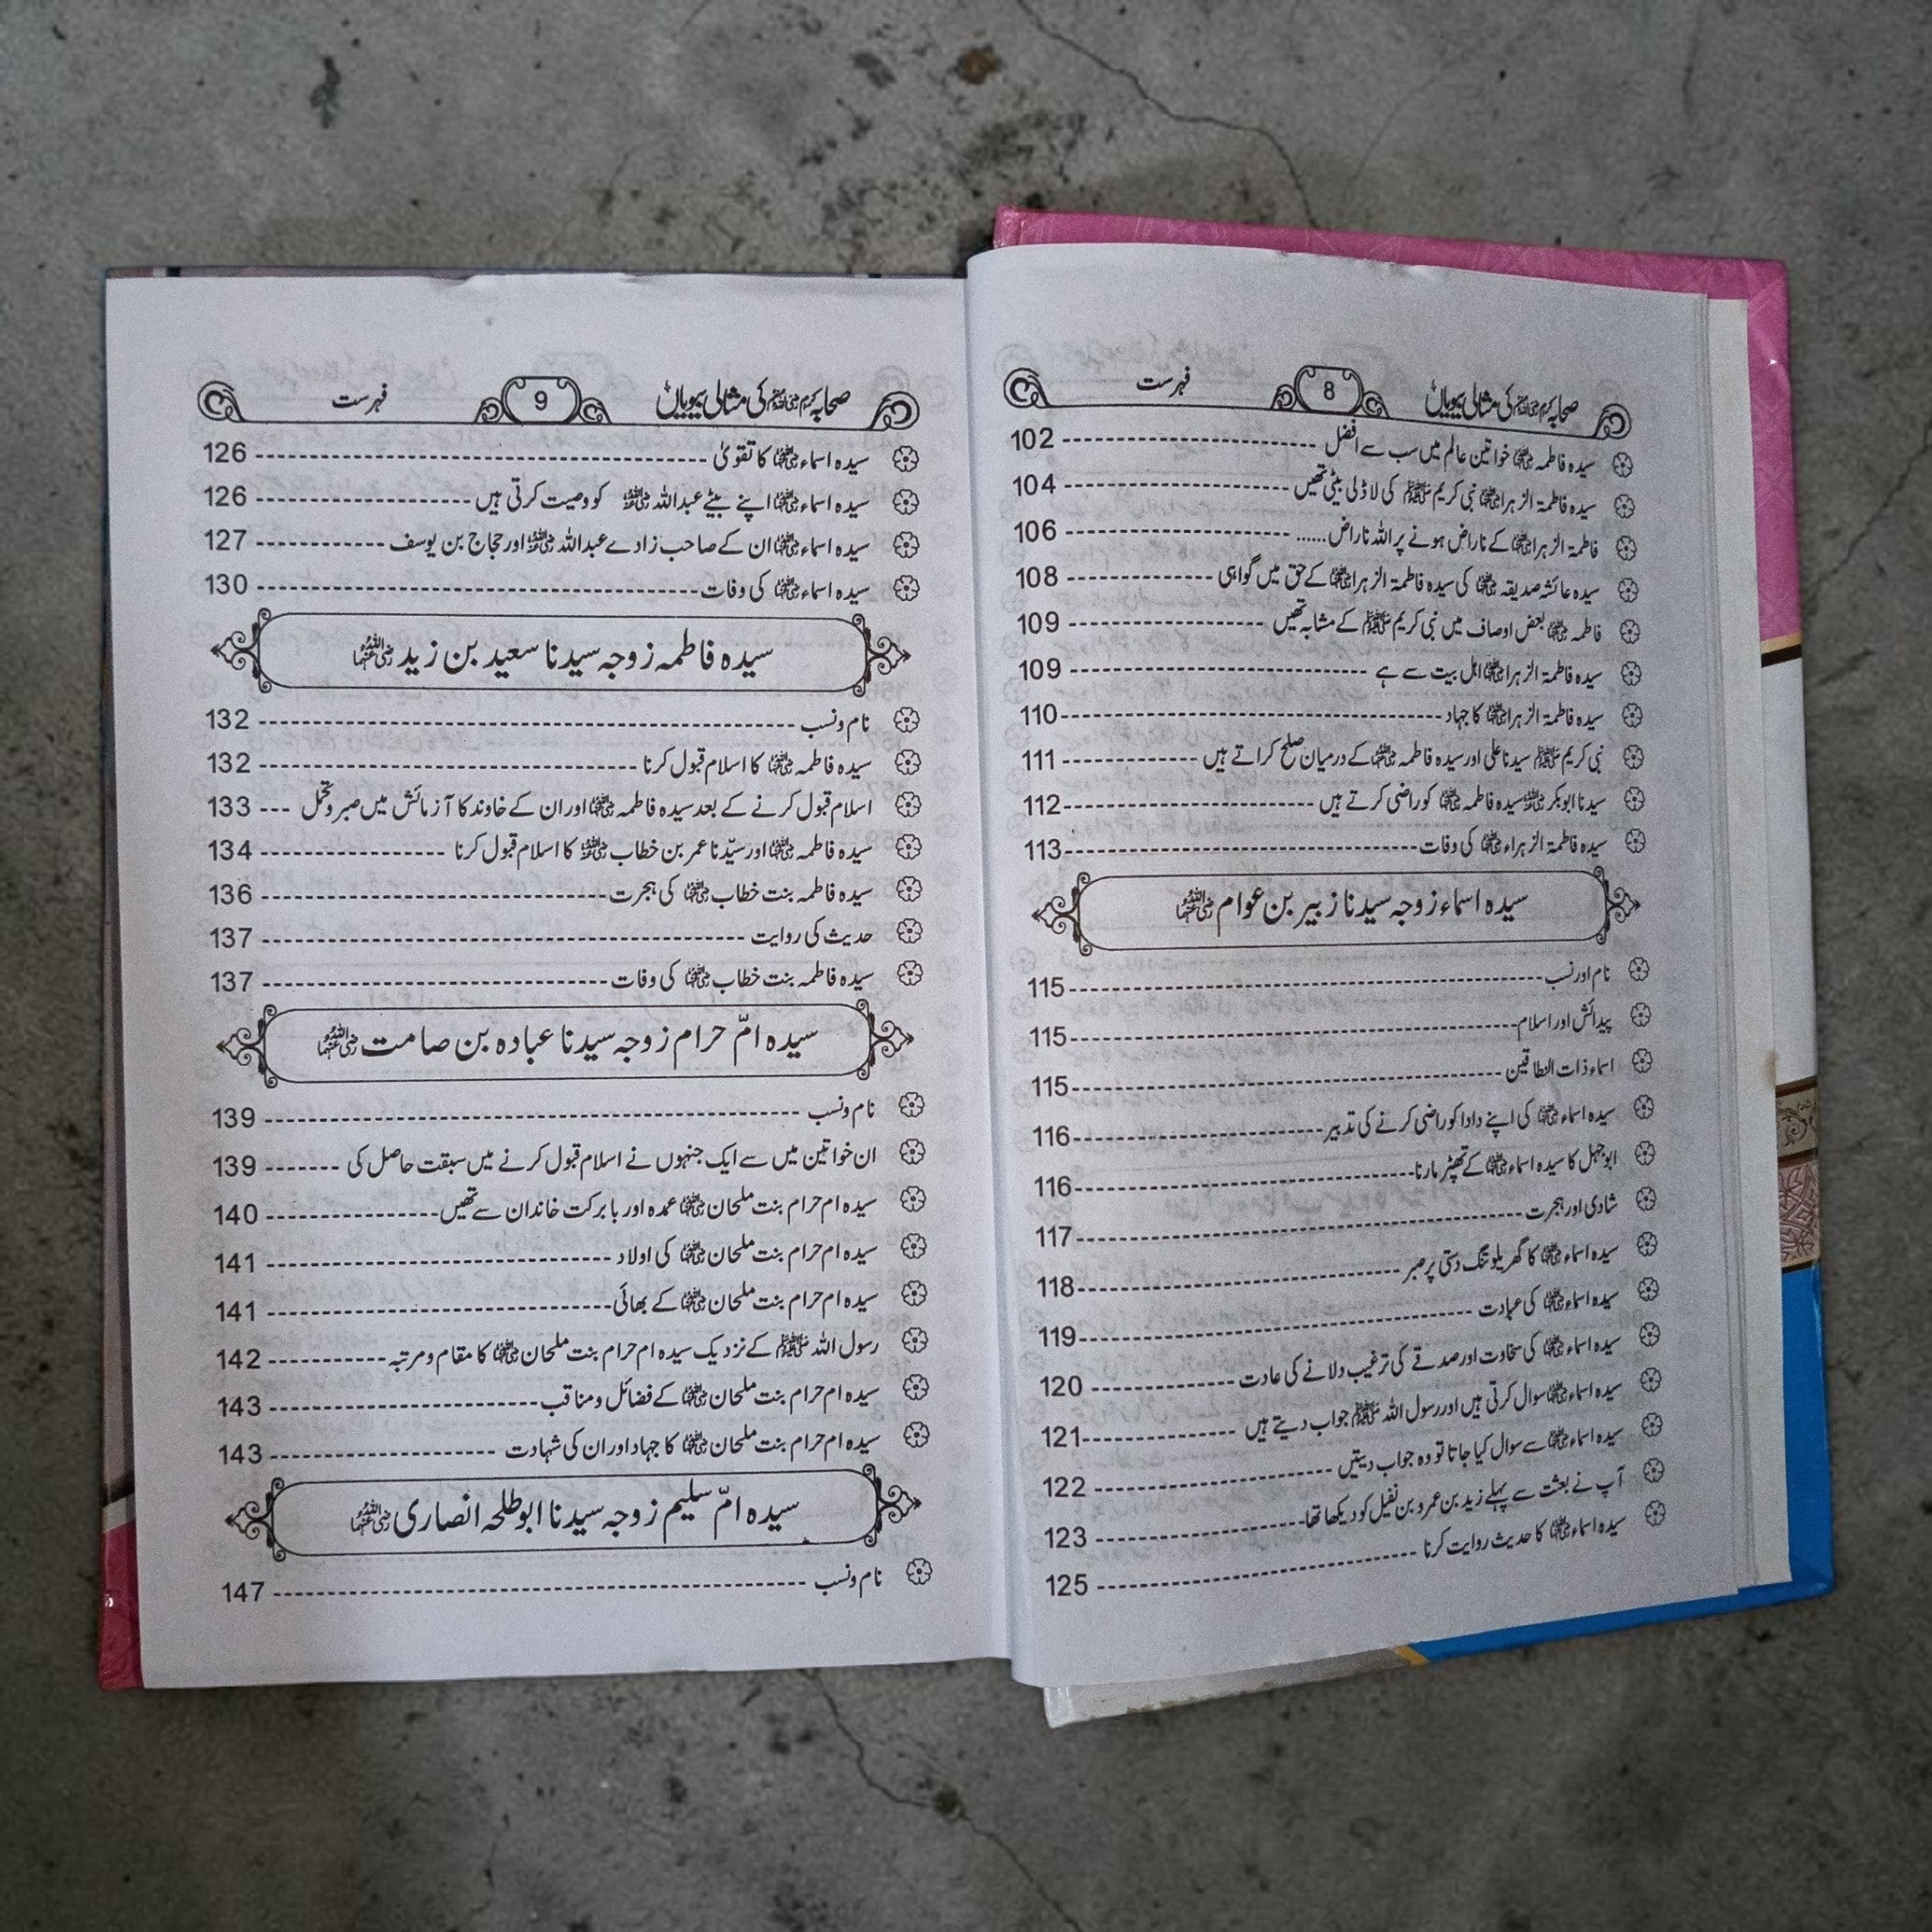 صحابہ کرام رضی اللہ عنہم کی مثالی بیویاں 8 فہرست
سیدہ فاطمہ رضی اللہ عنہا خواتین عالم میں سب سے افضل 102
سیدہ فاطمۃ الزہرا رضی اللہ عنہا نبی کریم ﷺ کی لاڈلی بیٹی تھیں 104
فاطمۃ الزہرا رضی اللہ عنہا کے ناراض ہونے پر اللہ ناراض...... 106
سیدہ عائشہ صدیقہ رضی اللہ عنہا کی سیدہ فاطمۃ الزہرا رضی اللہ عنہا کے حق میں گواہی 108
فاطمہ رضی اللہ عنہا بعض اوصاف میں نبی کریم ﷺ کے مشابہ تھیں 109
سیدہ فاطمۃ الزہرا رضی اللہ عنہا اہل بیت سے ہے 109
سیدہ فاطمۃ الزہرا رضی اللہ عنہا کا جہاد 110
نبی کریم ﷺ سیدنا علی اور سیدہ فاطمہ رضی اللہ عنہا کے درمیان صلح کراتے ہیں 111
سیدنا ابوبکر رضی اللہ عنہ سیدہ فاطمہ رضی اللہ عنہا کو راضی کرتے ہیں 112
سیدہ فاطمۃ الزہراء رضی اللہ عنہا کی وفات 113
سیدہ اسماء زوجہ سیدنا زبیر بن عوام رضی اللہ عنہما
نام اور نسب 115
پیدائش اور اسلام 115
اسماء ذات النطاقین 115
سیدہ اسماء رضی اللہ عنہا کی اپنے دادا کو راضی کرنے کی تدبیر 116
ابوجہل کا سیدہ اسماء رضی اللہ عنہا کے تھپڑ مارنا 116
شادی اور ہجرت 117
سیدہ اسماء رضی اللہ عنہا کا گھریلو تنگ دستی پر صبر 118
سیدہ اسماء رضی اللہ عنہا کی عبادت 119
سیدہ اسماء رضی اللہ عنہا کی سخاوت اور صدقے کی ترغیب دلانے کی عادت 120
سیدہ اسماء رضی اللہ عنہا سوال کرتی ہیں اور رسول اللہ ﷺ جواب دیتے ہیں 121
سیدہ اسماء رضی اللہ عنہا سے سوال کیا جاتا تو وہ جواب دیتیں 122
آپ نے بعثت سے پہلے زید بن عمرو بن نفیل کو دیکھا تھا 123
سیدہ اسماء رضی اللہ عنہا کا حدیث روایت کرنا 125
صحابہ کرام رضی اللہ عنہم کی مثالی بیویاں 9 فہرست
سیدہ اسماء رضی اللہ عنہا کا تقویٰ 126
سیدہ اسماء رضی اللہ عنہا اپنے بیٹے عبداللہ رضی اللہ عنہ کو وصیت کرتی ہیں 126
سیدہ اسماء رضی اللہ عنہا ان کے صاحب زادے عبداللہ رضی اللہ عنہ اور حجاج بن یوسف 127
سیدہ اسماء رضی اللہ عنہا کی وفات 130
سیدہ فاطمہ زوجہ سیدنا سعید بن زید رضی اللہ عنہما
نام و نسب 132
سیدہ فاطمہ رضی اللہ عنہا کا اسلام قبول کرنا 132
اسلام قبول کرنے کے بعد سیدہ فاطمہ رضی اللہ عنہا اور ان کے خاوند کا آزمائش میں صبر و تحمل 133
سیدہ فاطمہ رضی اللہ عنہا اور سیّدنا عمر بن خطاب رضی اللہ عنہ کا اسلام قبول کرنا 134
سیدہ فاطمہ بنت خطاب رضی اللہ عنہا کی ہجرت 136
حدیث کی روایت 137
سیدہ فاطمہ بنت خطاب رضی اللہ عنہا کی وفات 137
سیدہ امّ حرام زوجہ سیدنا عبادہ بن صامت رضی اللہ عنہما
نام و نسب 139
ان خواتین میں سے ایک جنہوں نے اسلام قبول کرنے میں سبقت حاصل کی 139
سیدہ ام حرام بنت ملحان رضی اللہ عنہا عمدہ اور بابرکت خاندان سے تھیں 140
سیدہ ام حرام بنت ملحان رضی اللہ عنہا کی اولاد 141
سیدہ ام حرام بنت ملحان رضی اللہ عنہا کے بھائی 141
رسول اللہ ﷺ کے نزدیک سیدہ ام حرام بنت ملحان رضی اللہ عنہا کا مقام و مرتبہ 142
سیدہ ام حرام بنت ملحان رضی اللہ عنہا کے فضائل و مناقب 143
سیدہ ام حرام بنت ملحان رضی اللہ عنہا کا جہاد اور ان کی شہادت 143
سیدہ امّ سلیم زوجہ سیدنا ابوطلحہ انصاری رضی اللہ عنہما
نام و نسب 147